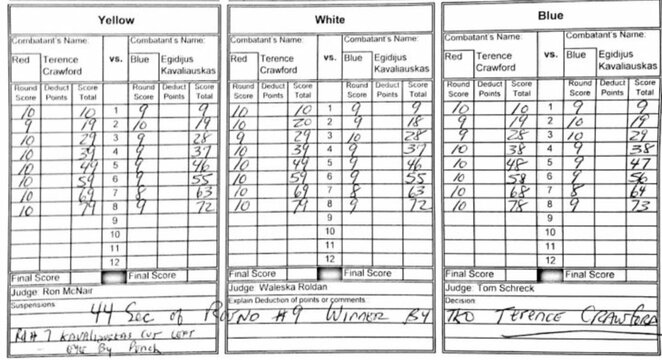 Yellow
Combatant's Name: Combatant's Name:
Red Terence Crawford vs. Blue Egidijus Kavaliauskas
Round Score Deduct Points Score Total Round Score Deduct Points Score Total
10 10 1 9 9
9 19 2 10 19
10 29 3 9 28
10 39 4 9 37
10 49 5 9 46
10 59 6 9 55
10 69 7 8 63
10 79 8 9 72
9
10
11
12
Final Score Final Score
Judge: Ron McNair
Suspensions
White
Combatant's Name: Combatant's Name:
Red Terence Crawford vs. Blue Egidijus Kavaliauskas
Round Score Deduct Points Score Total Round Score Deduct Points Score Total
10 10 1 9 9
10 20 2 9 18
9 29 3 10 28
10 39 4 9 37
10 49 5 9 46
10 59 6 9 55
10 69 7 8 63
10 79 8 9 72
9
10
11
12
Final Score Final Score
Judge: Waleska Roldan
Explain Deduction of points or comments
Blue
Combatant's Name: Combatant's Name:
Red Terence Crawford vs. Blue Egidijus Kavaliauskas
Round Score Deduct Points Score Total Round Score Deduct Points Score Total
10 10 1 9 9
9 19 2 10 19
9 28 3 10 29
10 38 4 9 38
10 48 5 9 47
10 58 6 9 56
10 68 7 8 64
10 78 8 9 73
9
10
11
12
Final Score Final Score
Judge: Tom Schreck
Decision
44 Sec of Round #9 Winner By TKO Terence Crawford
Rd # 7 Kavaliauskas cut left
eye By Punch